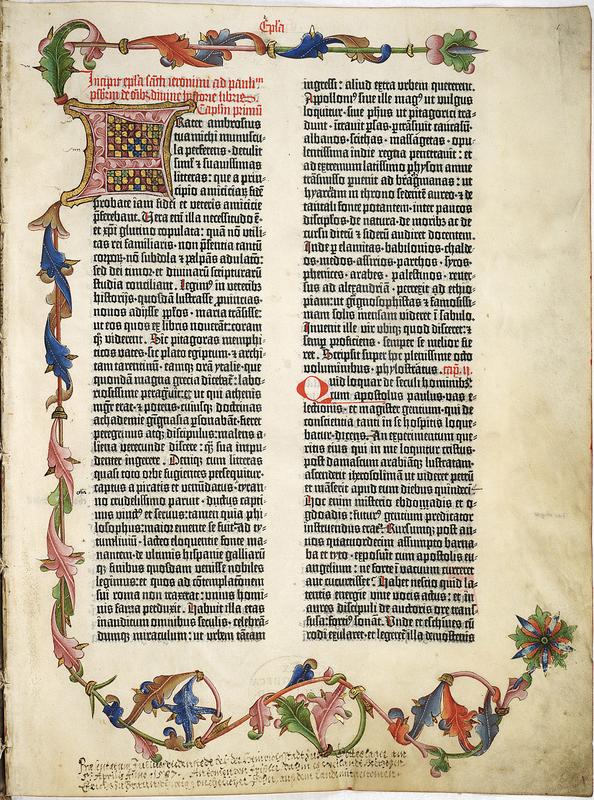 Epl̄a
Incipit epl̄a sc̄ti ieronimi ad paulinū
p̄sbiterū de om̄ibꝫ diuine historie libris.
Cap̄lm primū
Frater ambrosius
tua michi munuscu-
la perferens · detulit
siml̄ ⁊ suauissimas
litteras: que a prin-
cipio amiciciaꝝ fidē
probate iam fidei et veteris amicicie
p̄ferebant. Vera em̄ illa necessitudo ē·
et xp̄i glutino copulata: quā nō utili-
tas rei familiaris · non p̄sentia tantū
corpoꝝ· nō subdola ⁊ palpās adulacō:
sed dei timor · et diuinaꝝ scripturarū
studia conciliant. Legim⁹ in veteribꝫ
historijs · quosdā lustrasse ꝓuincias·
nouos adijsse pplos · maria trāsisse:
ut eos quos ex libris nouerāt: coram
qꝫ viderent. Sic pitagoras memphi-
ticos vates · sic plato egiptum · ⁊ archi-
tam tarentinū · eamqꝫ orā ytalie · que
quondā magna grecia dicebat: labo-
riosissime peragrauit: ut qui athenis
mgr̄ erat · ⁊ potens · cuiusqꝫ doctrinas
achademie gignasia ꝑsonabāt: fieret
peregrinus atqꝫ discipulus: malens a-
liena verecunde discere: qꝫ sua impu-
denter ingerere. Deniqꝫ cum litteras
quasi toto orbe fugientes persequitur·
captus a piratis et venundatus · tyran-
no crudelissimo paruit · ductus capti-
uus vinct⁹ et seruus: tamen quia phi-
losophus: maior emente se fuit: ad ty-
tumliuiū · lacteo eloquentie fonte ma-
nantem · de vltimis hispanie galliarū-
qꝫ finibus quosdam venisse nobiles
legimus: et quos ad cōtemplacionem
sui roma non traxerat: unius homi-
nis fama perduxit. Habuit illa etas
inauditum omnibus seculis · celebrā-
dumqꝫ miraculum: ut vrbem tātam
ingressi: aliud extra vrbem quererent.
Appolloni⁹ siue ille mag⁹ ut vulgus
loquitur · siue ph̄us ut pitagorici tra-
dunt · intrauit ꝑsas · ꝑtrāsiuit caucasū·
albanos · scithas · massagetas · opu-
lentissima indie regna penetrauit: et
ad extremum latissimo physon amne
trāsmisso puenit ad bragmanas: ut
hyarcam in throno sedentē aureo · ⁊ de
tantali fonte potantem · inter paucos
discipulos · de natura · de moribꝫ ac de
cursu dierū ⁊ siderū audiret docentem.
Inde ꝑ elamitas · babilonios · chalde-
os · medos · assirios · parthos · syros·
phenices · arabes · palestinos · reuer-
sus ad alexandriā · perrexit ad ethio-
piam: ut gignosophistas ⁊ famosissi-
mam solis mensam videret ī sabulo.
Inuenit ille vir vbiqꝫ quod disceret: ⁊
semp proficiens · semper se melior fie-
ret. Scripsit super hoc plenissime octo
voluminibus · phylostratus. cap. ii.
Quid loquar de seculi hominibꝫ:
cum apostolus paulus · vas e-
lectionis · et magister gentium · qui de
conscientia tanti in se hospitis loque-
batur · dicens. An experimentum que-
ritis eius qui in me loquitur cristus·
post damascum arabiāqꝫ lustratam·
ascenderit iherosolimā ut videret petrū
et māserit apud eum diebus quindecī·
Hoc enim misterio ebdomadis et o-
gdoadis: futur⁹ gentium predicator
instruendus erat. Rursumqꝫ post an-
nos quatuordecim assumpto barna-
ba et tyto · exposuit cum apostolis eu-
angelium: ne forte ī vacuum curreret
aut cucurrisset. Habet nescio quid la-
tentis energie viue vocis actus: et in
aures discipuli de auctoris ore trans-
fusa: forti⁹ sonat. Vnde et eschines cū
rodi exularet · et legeret̄ illa demostenis